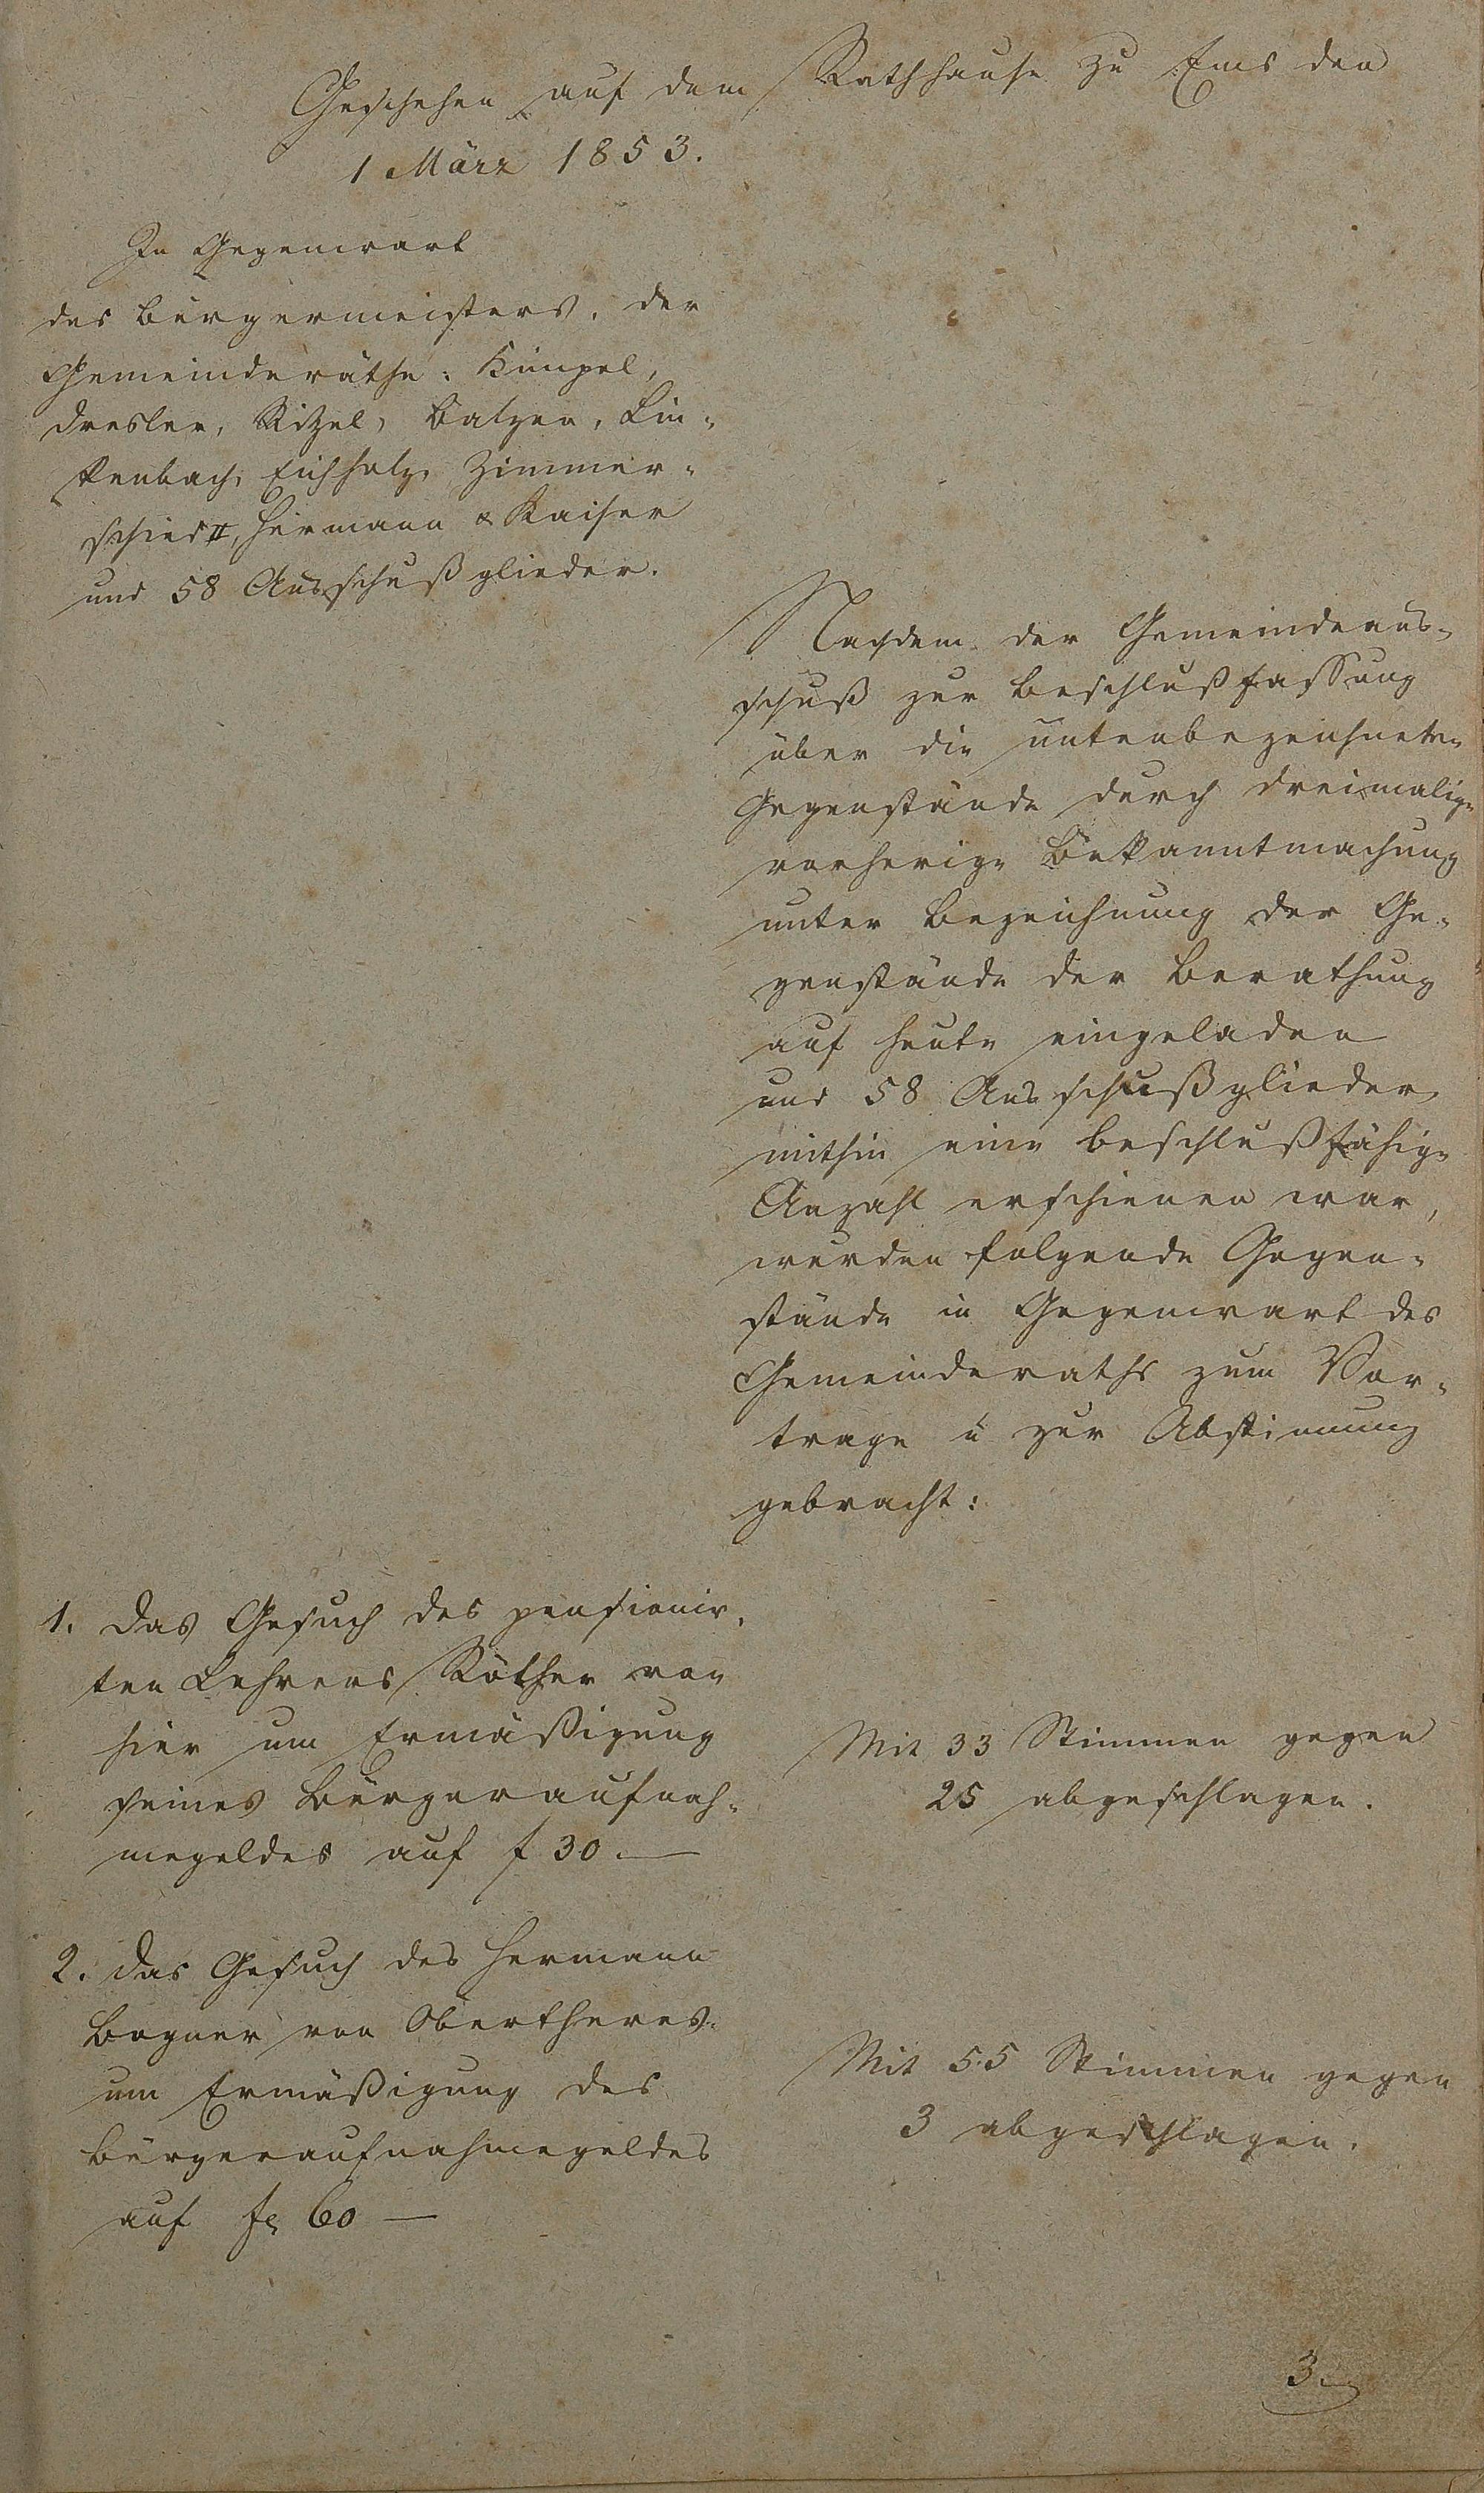 Geschehen auf dem Rathhause zu Ems den
1 März 1853.
In Gegenwart
des Bürgermeisters, der
Gemeinderäthe: Küngel,
Dresler, Ritzel, Balzer, Lin-
kenbach, Eichholz, Zimmer-
schied II, Hermann & Kaiser
und 58 Ausschußglieder.
Nachdem der Gemeindeaus-
schuß zur Beschlußfassung
über die untenbezeichneten
Gegenstände durch dreimalige
vorherige Bekanntmachung
unter Bezeichnung der Ge-
genstände der Berathung
auf heute eingeladen
und 58 Ausschußglieder,
mithin eine beschlußfähige
Anzahl erschienen war,
wurden folgende Gegen-
stände in Gegenwart des
Gemeinderaths zum Vor-
trage u zur Abstimmung
gebracht:
1. Das Gesuch des pensionir-
ten Lehrers Köther von
hier um Ermäßigung
seines Bürgeraufnah-
megeldes auf f 30.—
Mit 33 Stimmen gegen
25 abgeschlagen.
2. Das Gesuch des Hermann
Bogner von Obertheres
um Ermäßigung des
Bürgeraufnahmegeldes
auf fl 60 —
Mit 55 Stimmen gegen
3 abgeschlagen.
3.